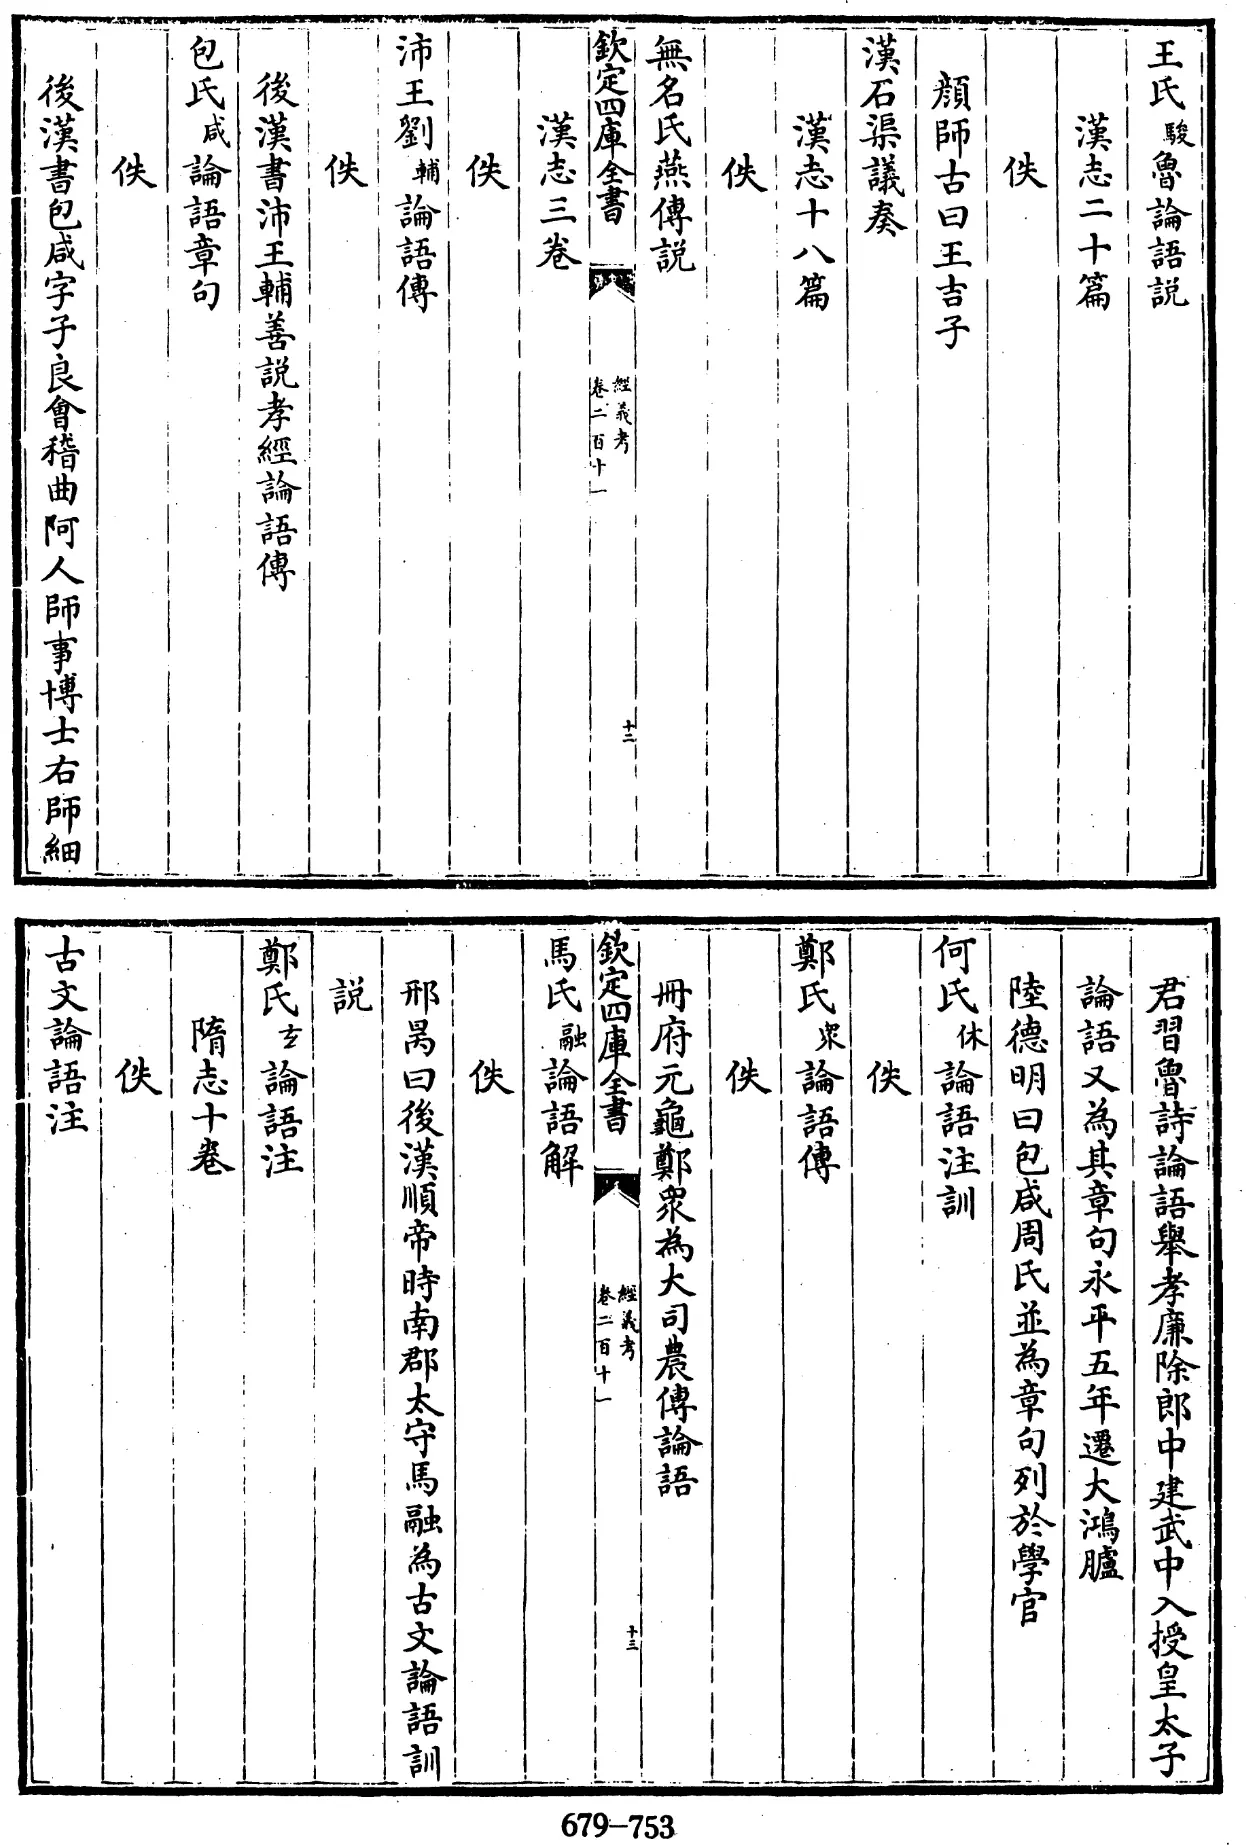 王氏駿魯論語説
漢志二十篇
佚
顔師古曰王吉子
漢石渠議奏
漢志十八篇
佚
無名氏燕傳説
欽定四庫全書
經義考
卷二百十一
十二
漢志三卷
佚
沛王劉輔論語傳
佚
後漢書沛王輔善説孝經論語傳
包氏咸論語章句
佚
後漢書包咸字子良會稽曲阿人師事博士右師細
君習魯詩論語舉孝廉除郎中建武中入授皇太子
論語又為其章句永平五年遷大鴻臚
陸德明曰包咸周氏並為章句列於學官
何氏休論語注訓
佚
鄭氏衆論語傳
佚
冊府元龜鄭衆為大司農傳論語
欽定四庫全書
經義考
卷二百十一
十三
馬氏融論語解
佚
邢昺曰後漢順帝時南郡太守馬融為古文論語訓
説
鄭氏玄論語注
隋志十卷
佚
古文論語注
679-753